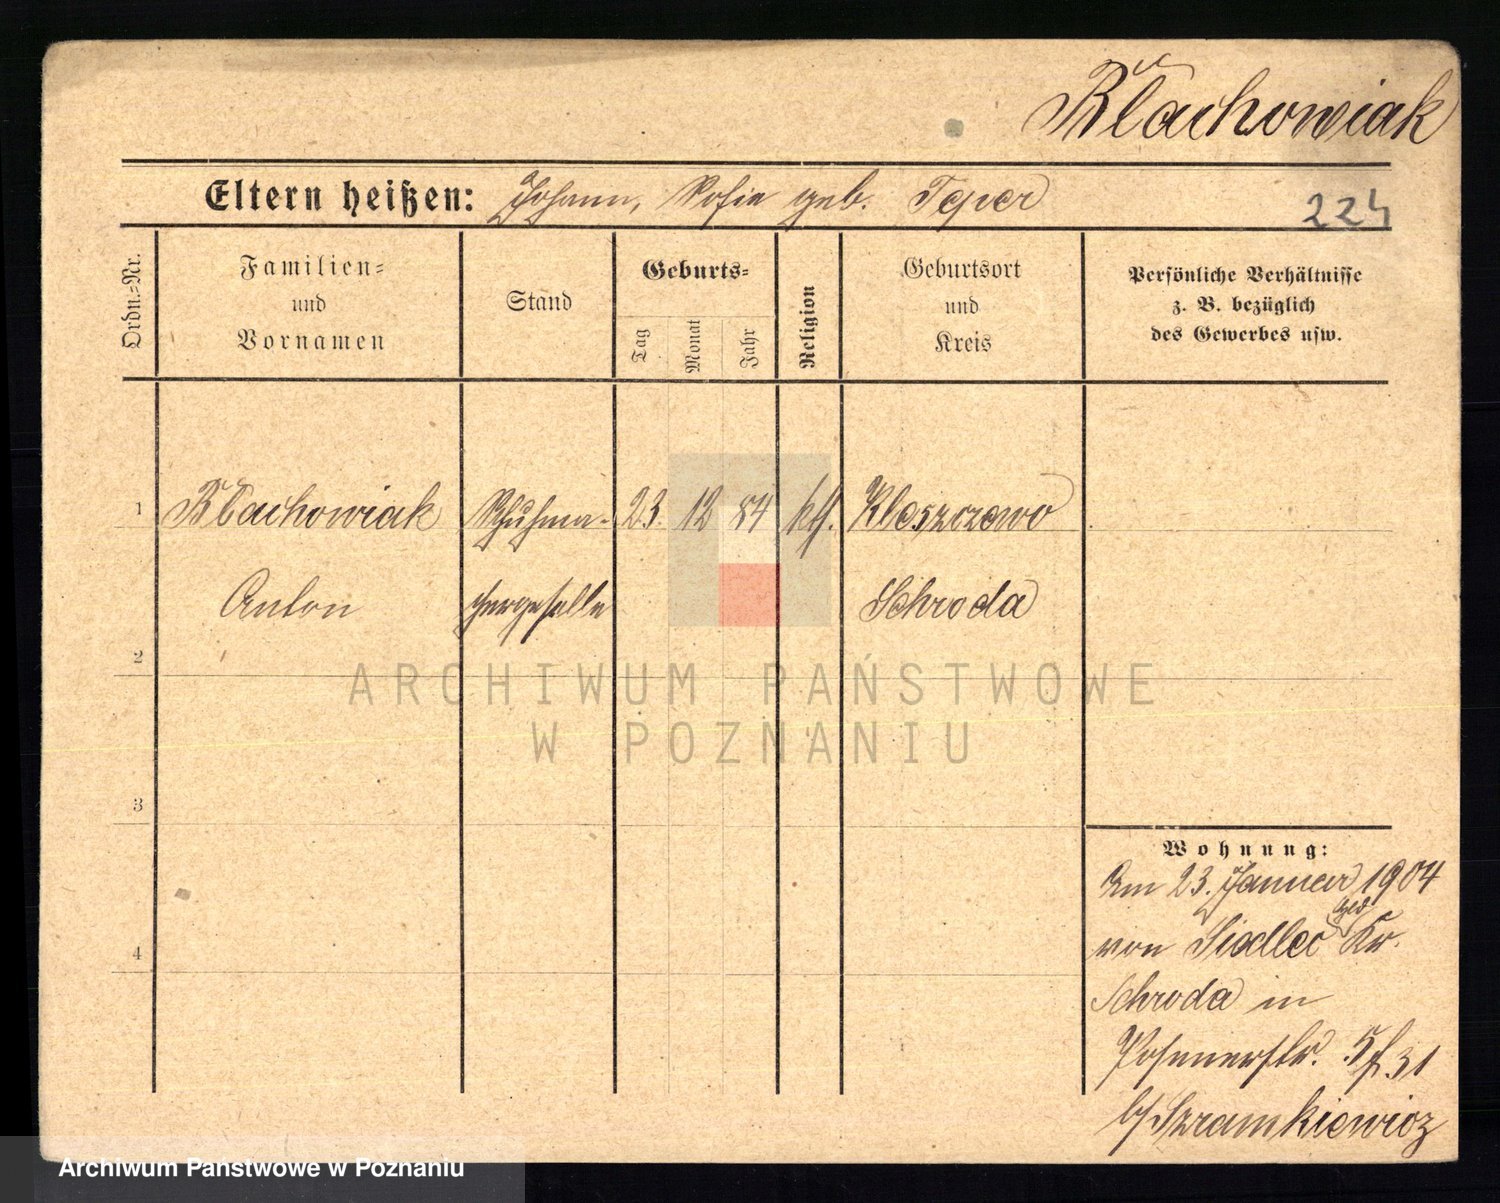 Błachowiak
Eltern heißen: Johann, Sofie geb. Teper
224
Ordn.=Nr.
Familien=
und
Vornamen
Stand
Geburts=
Tag
Monat
Jahr
Religion
Geburtsort
und
Kreis
Persönliche Verhältnisse
z. B. bezüglich
des Gewerbes usw.
1 Błachowiak Schuhma- 23. 12 84 kth. Kleszczewo
Anton chergeselle Schroda
2
3
4
Wohnung:
Am 23. Januar 1904
von Siedlec Kr.
Schroda in
Posenerstr. 31
b/Szramkiewicz
ARCHIWUM PAŃSTWOWE
W POZNANIU
Archiwum Państwowe w Poznaniu